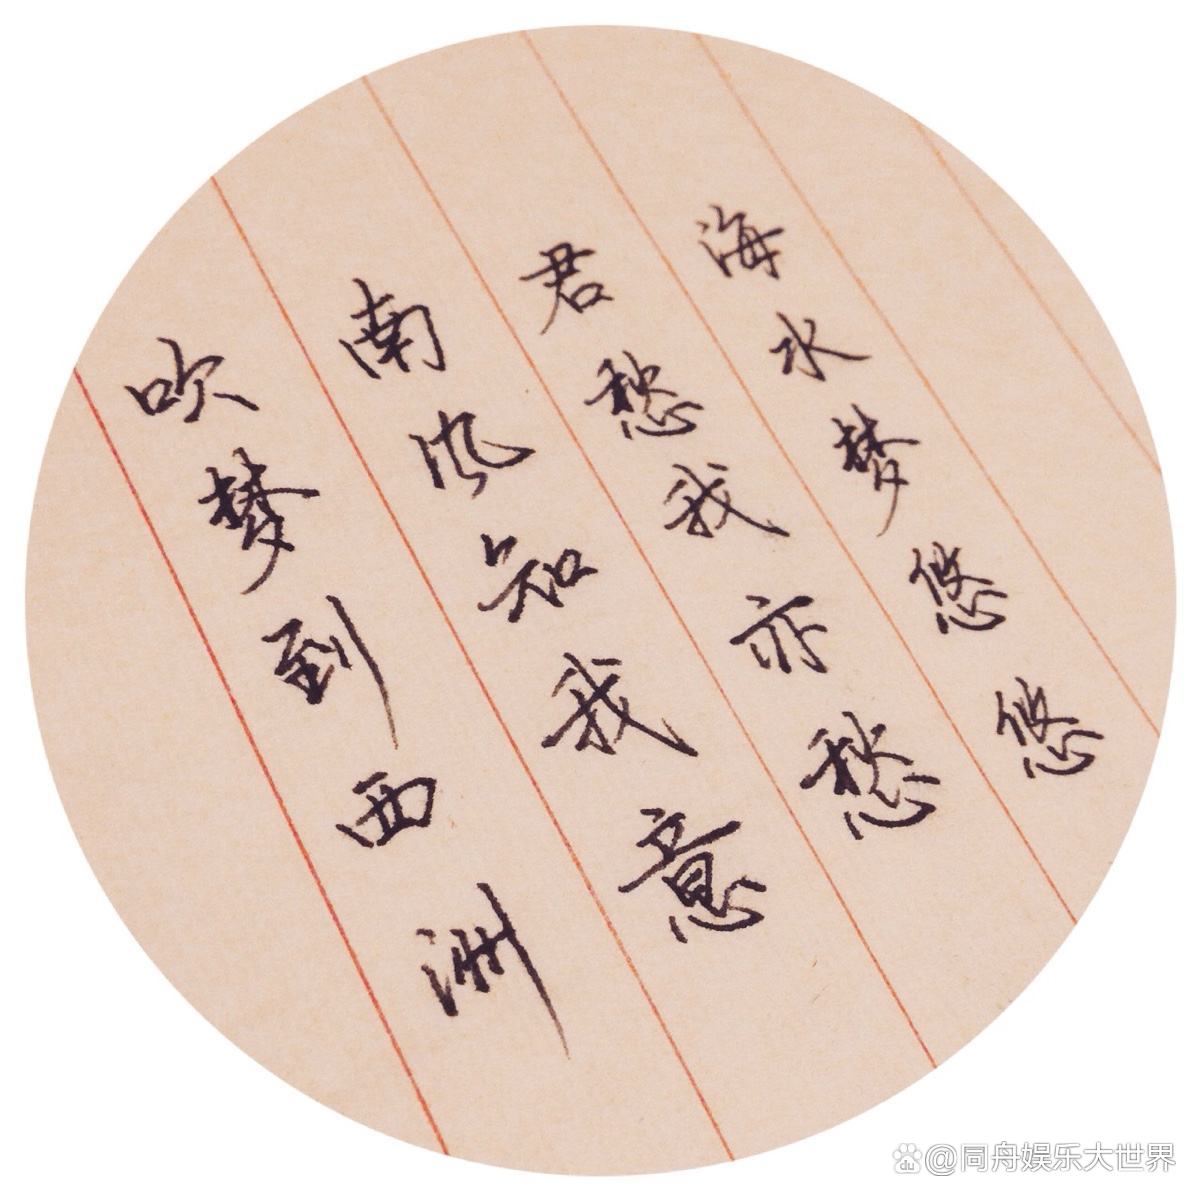 海水梦悠悠
君愁我亦愁
南风知我意
吹梦到西洲
@同舟娱乐大世界